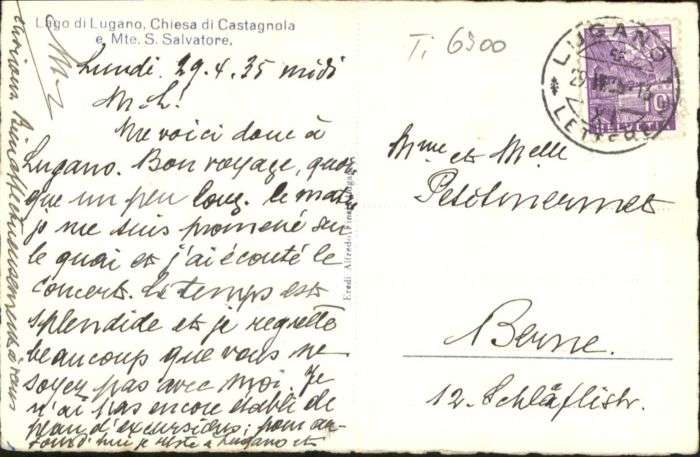 Lago di Lugano, Chiesa di Castagnola
e Mte. S. Salvatore.
Lundi. 29.4.35 midi
M. L.
Me voici donc à
Lugano. Bon voyage, quoi-
que un peu long. Le matin
je me suis promené sur
le quai et j'ai écouté le
concert. Le temps est
splendide et je regrette
beaucoup que vous ne
soyez pas avec moi. Je
n'ai pas encore établi de
plan d'excursions; pour au-
jourd'hui je reste à Lugano et
environs. Bien affectueusement à vous
Eredi Alfredo Finzi, Lugano
Ti 6300
LUGANO 1
LETTERE
10
HELVETIA
Mme et Melle
Petitmermet
Berne.
12. Schläflistr.